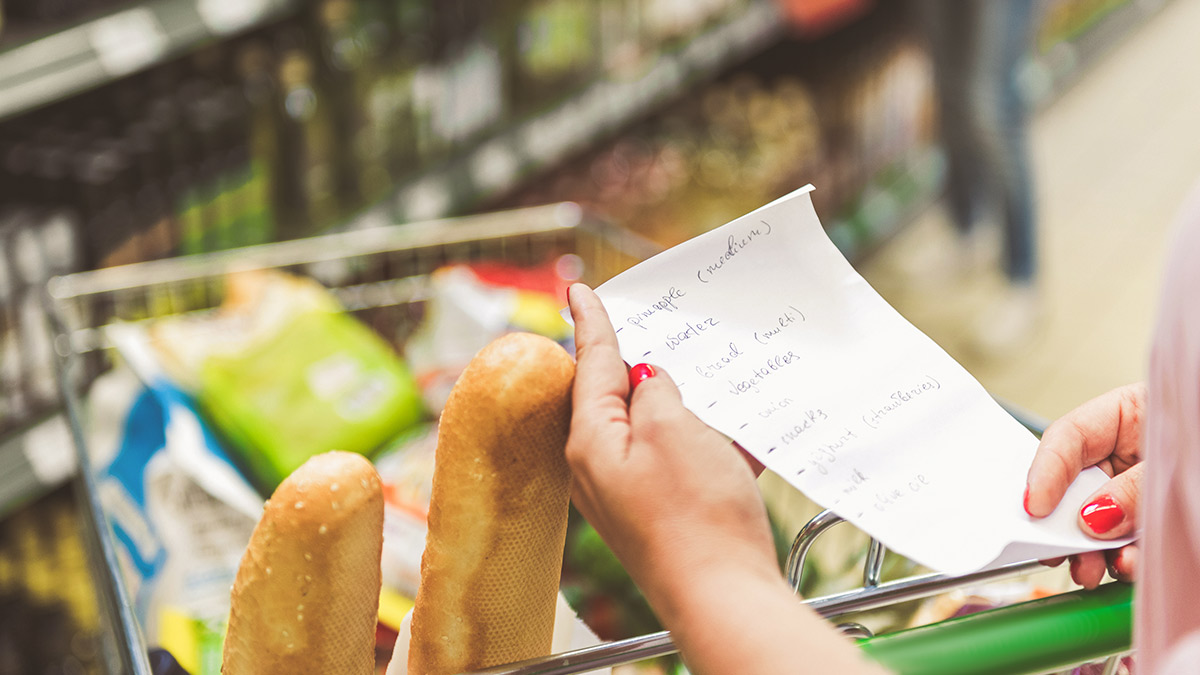 - pineapple (medium)
- water
- bread (multi)
- vegetables
- onion
- snacks
- yoghurt (strawberries)
- milk
- olive oil